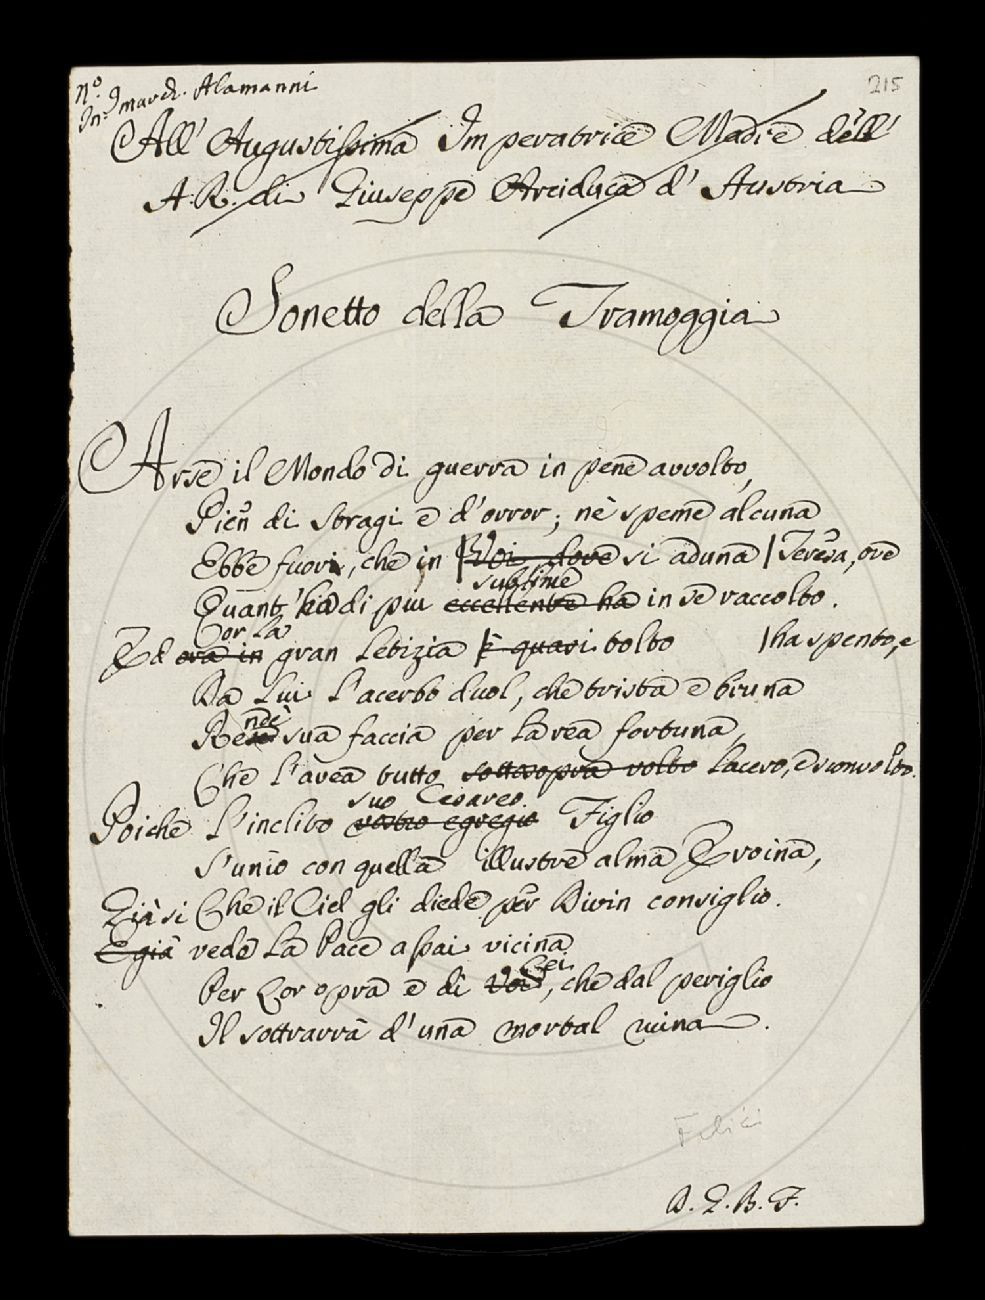 N.º
In: march. Alamanni
215
All' Augustissima Imperatrice Madre dell'
A.R. di Giuseppe Arciduca d' Austria
Sonetto della Tramoggia
Arse il Mondo di guerra in pene avvolto,
Pien di stragi e d'orror; nè speme alcuna
Ebbe fuori, che in | Voi, dove si aduna | Teresa, ove
sublime
Quant' ha di più eccellente ha in se raccolto.
Or la
Ed ora in gran Letizia | è quasi tolto | ha spento, e
Da Lui L'acerbo duol, che trista e bruna
nee
Rese sua faccia per La rea fortuna,
Che L'avea tutto sottosopra volto Lacero, e sconvolto.
suo Cesareo
Poichè L'inclito vostro egregio Figlio
S'unìo con quella illustre alma Eroina,
Già si Che il Ciel gli diede per Divin consiglio.
E già vede La Pace assai vicina
Lei
Per Lor opra e di Voi, che dal periglio
Il sottrarrà d'una mortal ruina.
Felici
D. L. B. F.